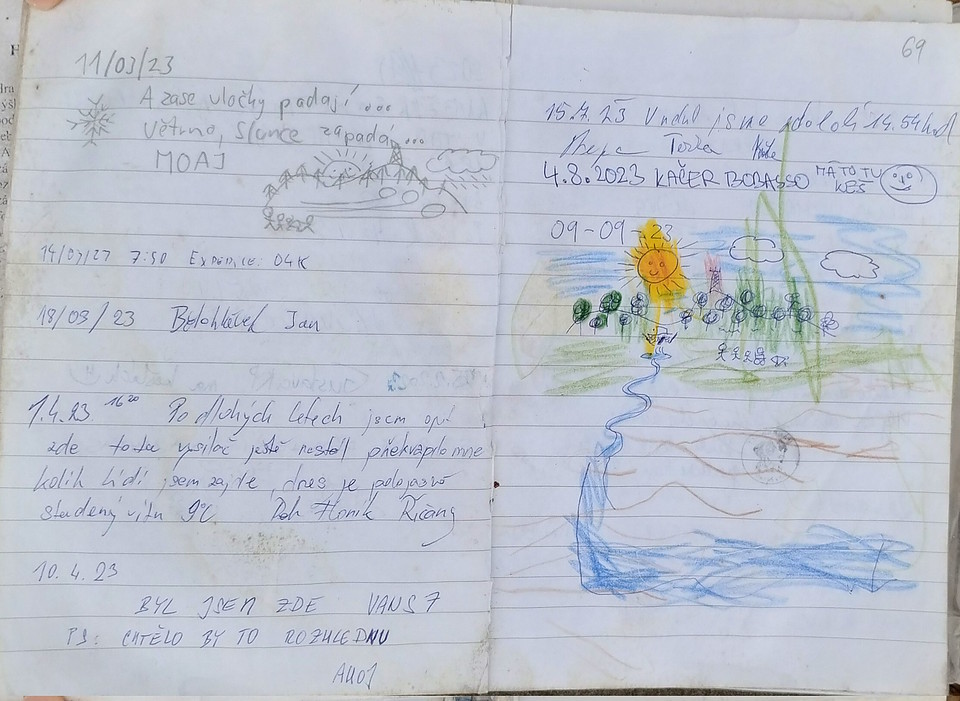 11/03/23
A zase vločky padají...
větrno, slunce zapadá...
MOAJ
7:50
18/03/23 Bělohlávek Jan
1.4.23. 16 20 Po dluhých letech jsem opět
zde tento vysílač ještě nestál překvapilo mne
kolik lidí jsem zajre, dnes je polojasno
studený vítr 9°C
10.4.23
BYL JSEM ZDE VANS7
PS: CHTĚLO BY TO ROZHLEDNU
AHOJ
69
15.7.23 jsme zdolali 14.54hod
Terka
4.8.2023 KAČER BOBASSO MÁ TO TU
KEŠ
09-09-23